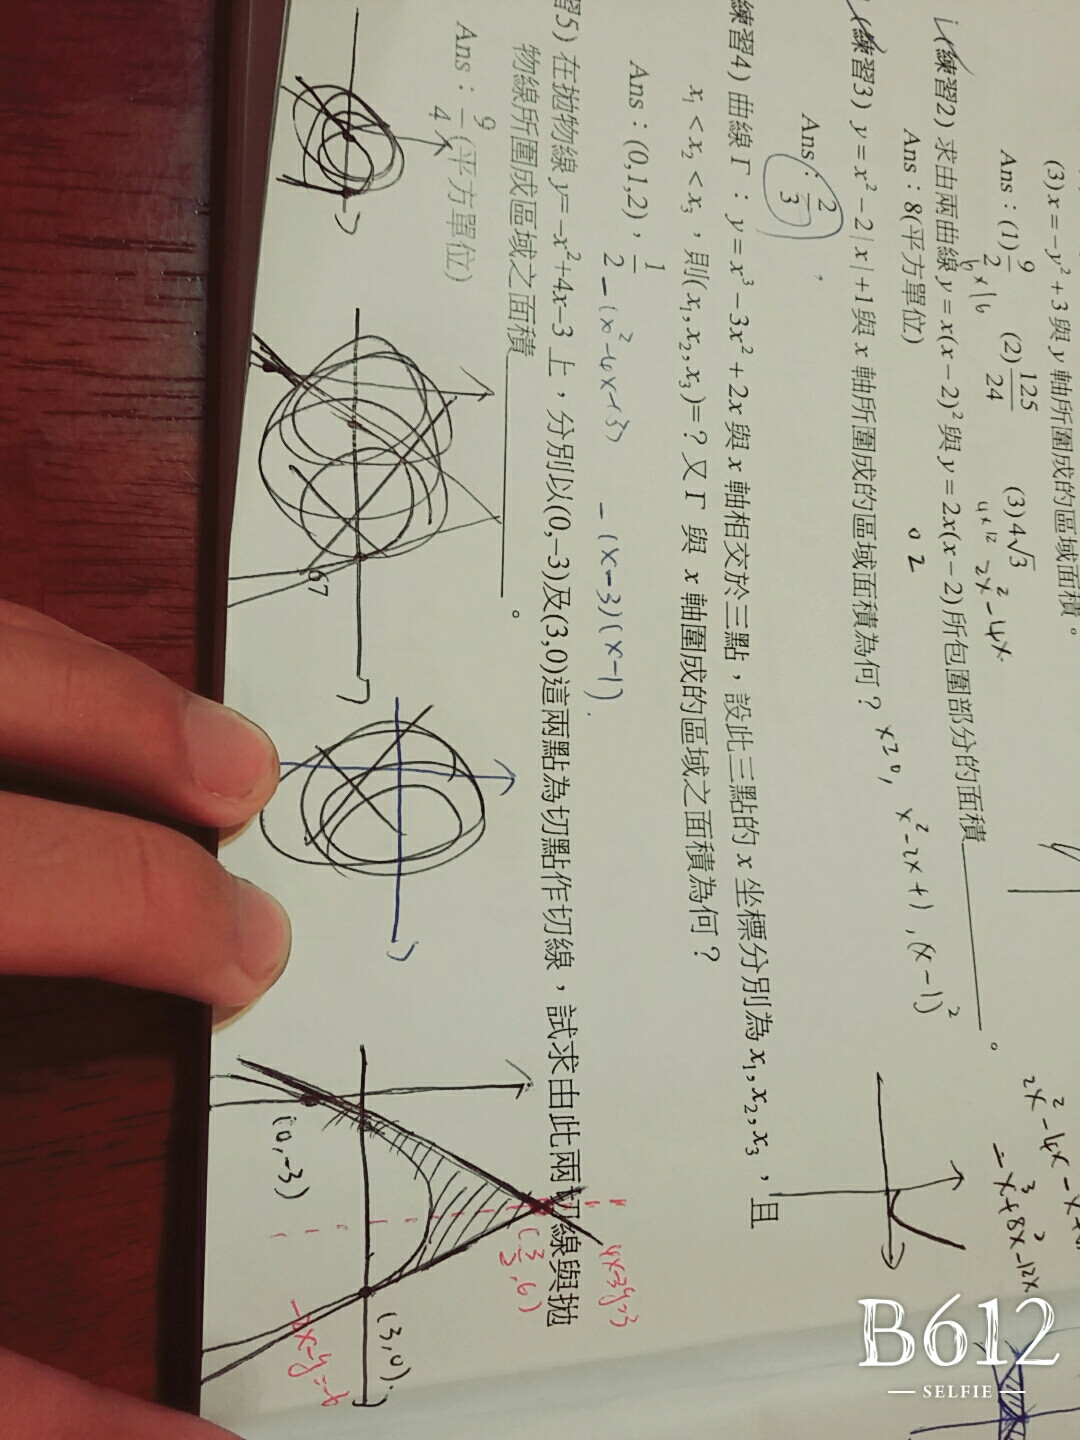 (3) x = −y² + 3 與 y 軸所圍成的區域面積。
Ans : (1) 9/2 (2) 125/24 (3) 4√3
(練習2) 求由兩曲線 y = x(x − 2)² 與 y = 2x(x − 2) 所包圍部分的面積________。
Ans : 8 (平方單位)
0 2
2x² − 4x
(練習3) y = x² − 2 | x | + 1 與 x 軸所圍成的區域面積為何？
x≥0, x² − 2x + 1, (x − 1)²
Ans : 2/3
練習4) 曲線 Γ : y = x³ − 3x² + 2x 與 x 軸相交於三點，設此三點的 x 坐標分別為 x₁, x₂, x₃，且
x₁ < x₂ < x₃，則(x₁, x₂, x₃)=？又 Γ 與 x 軸圍成的區域之面積為何？
Ans : (0,1,2)，1/2
− (x² − 4x + 3) − (x − 3)(x − 1)
習5) 在拋物線 y= −x²+4x−3 上，分別以(0,−3)及(3,0)這兩點為切點作切線，試求由此兩切線與拋
物線所圍成區域之面積________。
Ans : 9/4 (平方單位)
(0, −3)
(3, 0)
B612
SELFIE